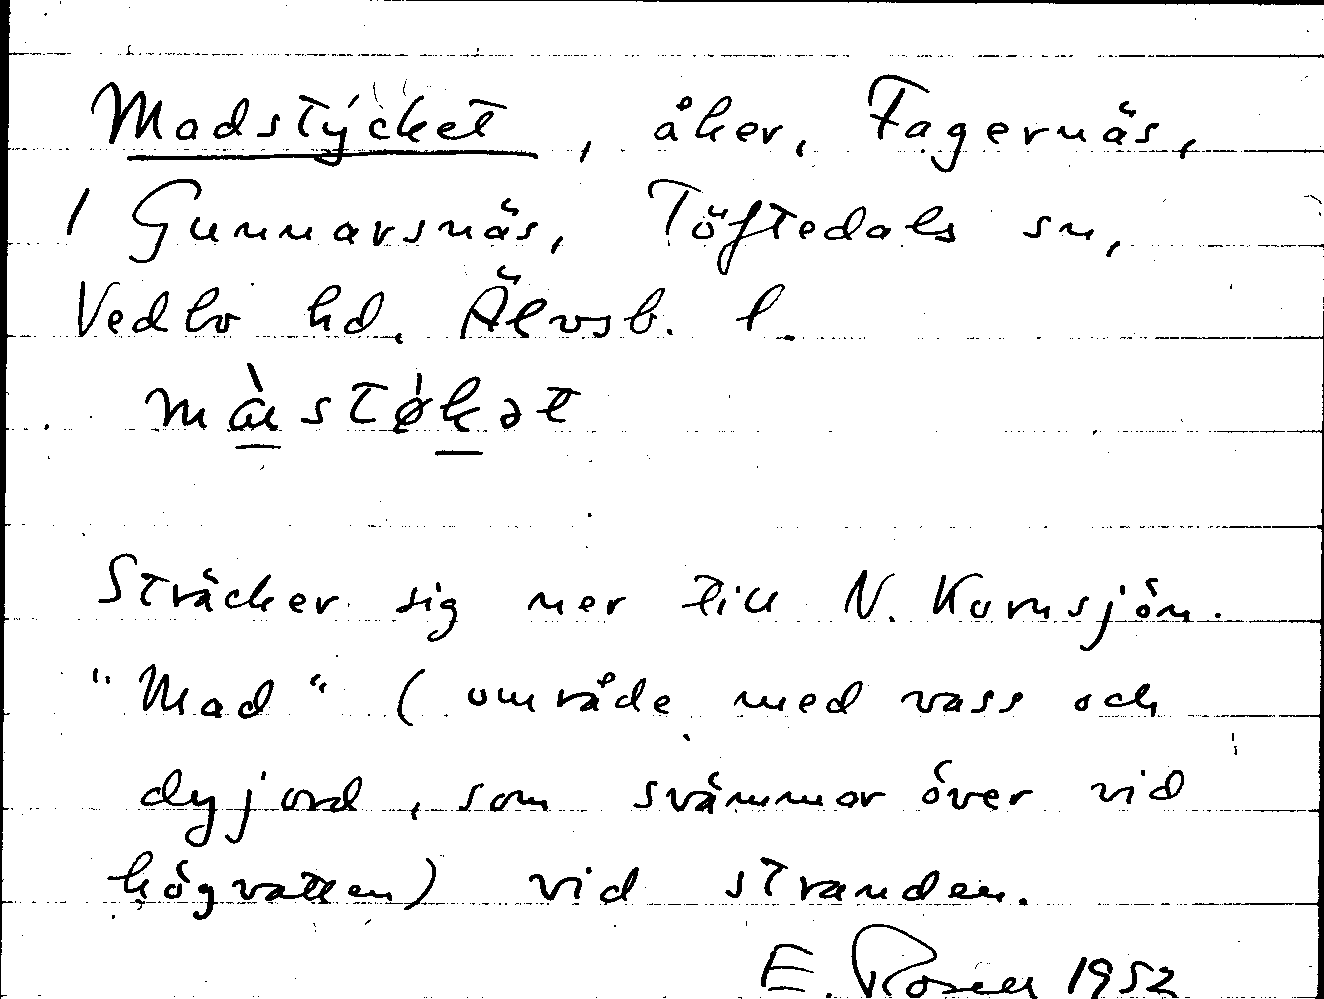 Madstýcket, åker, Fagernäs,
1 Gunnarsnäs, Töftedals sn,
Vedbo hd. Älvsb. l.
màstø̍kət
Sträcker sig ner till N. Kornsjön.
"Mad" (område med vass och
dyjord, som svämmar över vid
högvatten) vid stranden.
E. Rosén 1952